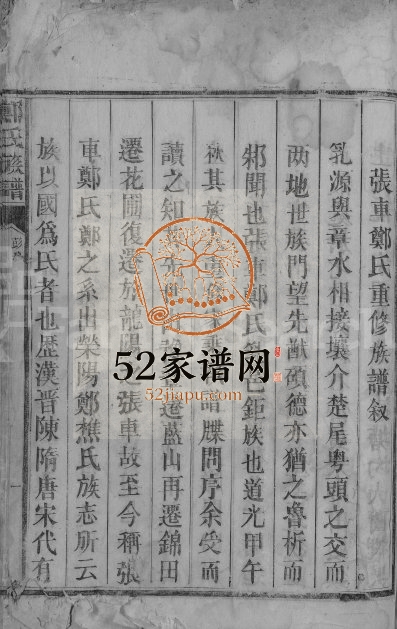 張車鄭氏重修族譜叙
乳源與章水相接壤介楚尾粵頭之交而
两地世族門望先猷碩德亦猶之魯柝而
邾聞也張車鄭氏鉅族也道光甲午
秋其族譜牒問序余受而
讀之知其先遷藍山再遷錦田
遷花圃復遷於龍陽之張車故至今稱張
車鄭氏鄭之系出榮陽鄭樵氏族志所云
族以國爲氏者也歷漢晉陳隋唐宋代有
鄭氏族譜
叙
一
52家谱网
52jiapu.com